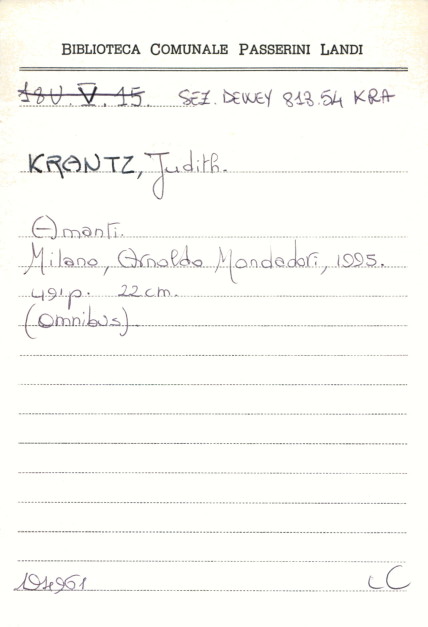 BIBLIOTECA COMUNALE PASSERINI LANDI
18U. V. 15. SEZ. DEWEY 813.54 KRA
KRANTZ, Judith.
Amanti.
Milano, Arnoldo Mondadori, 1995.
491p. 22cm.
(Omnibus).